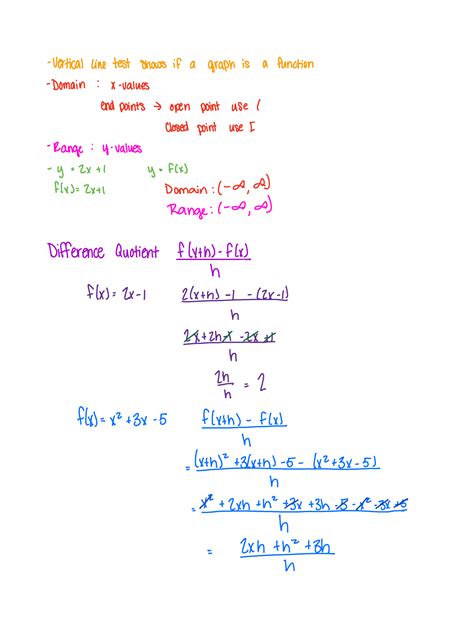 -Vertical line test shows if a graph is a function
-Domain : x-values
end points → open point use (
closed point use [
-Range : y-values
- y = 2x+1 y = f(x)
f(x)= 2x+1 Domain: (-∞, ∞)
Range: (-∞, ∞)
Difference Quotient f(x+h)-f(x)
h
f(x)= 2x-1 2(x+h) -1 - (2x-1)
h
2x+2h-1 -2x+1
h
2h
h = 2
f(x)= x² +3x -5 f(x+h) - f(x)
h
= (x+h)² +3(x+h) -5 - (x²+3x-5)
h
= x² + 2xh + h² +3x +3h -5 -x² -3x +5
h
= 2xh + h² +3h
h